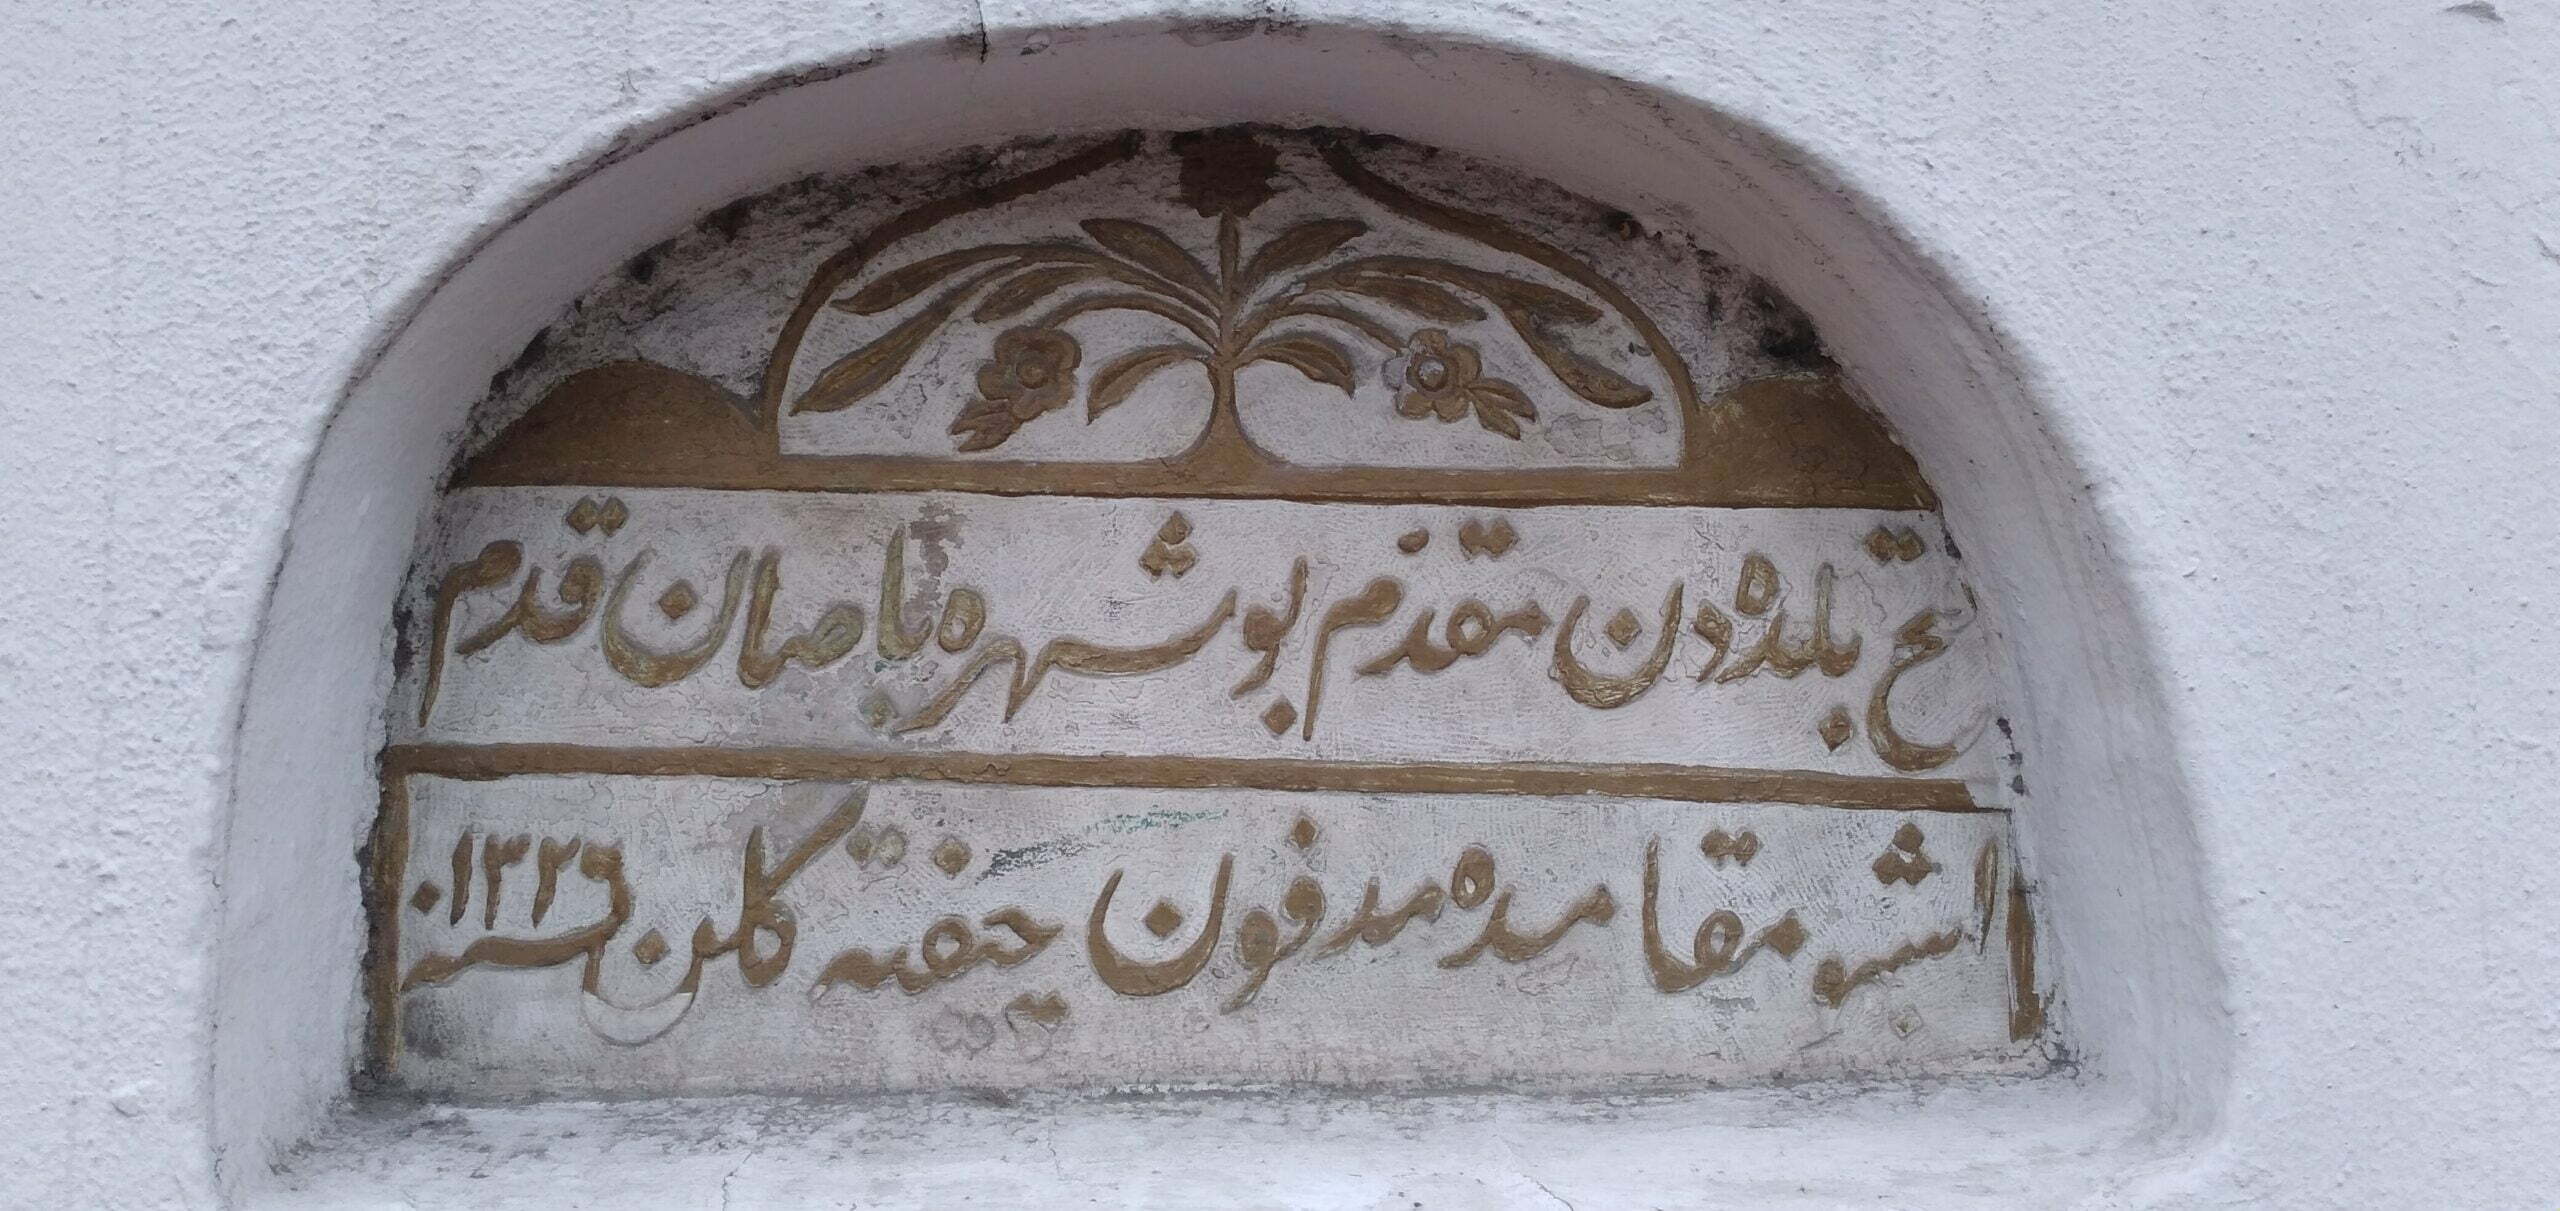 فتح بلده دن مقدم بو شهره باصان قدم
اشبو مقامده مدفون جيفته كلن سنه ١٣٢٦